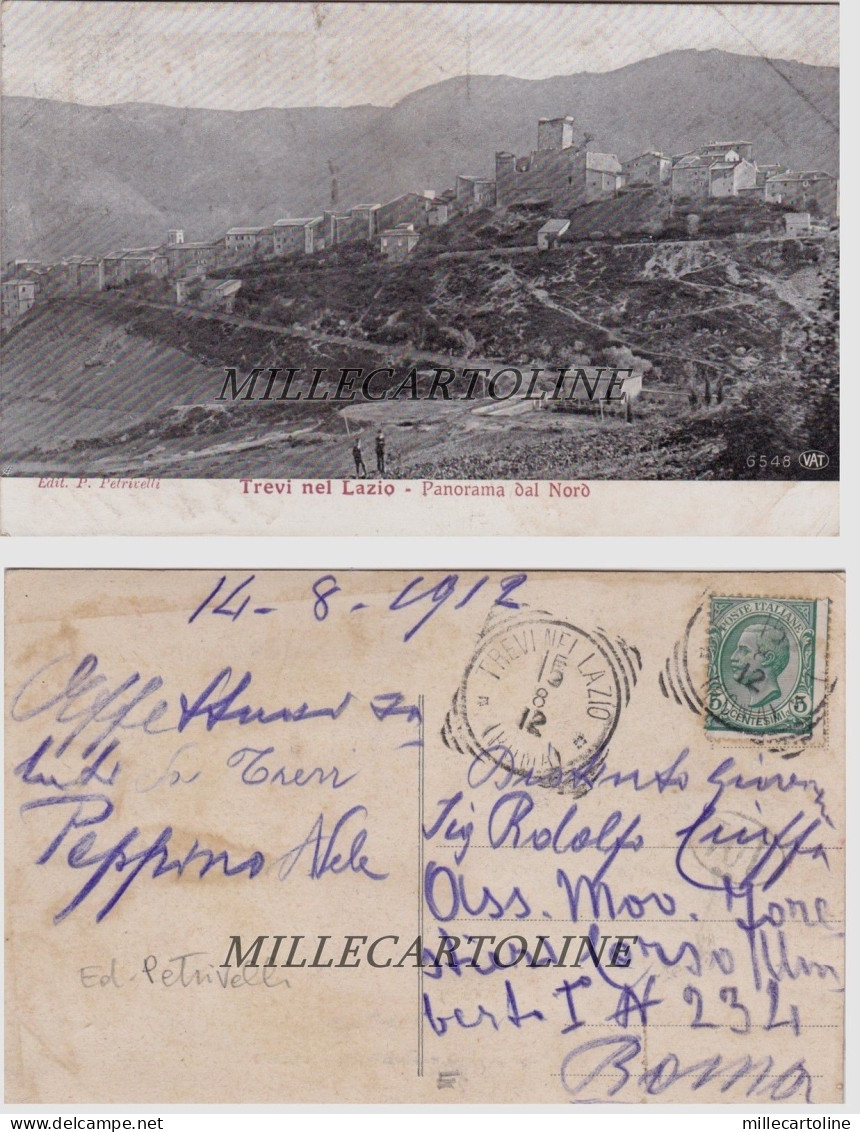 MILLECARTOLINE
6548 VAT
Edit. P. Petrivelli
Trevi nel Lazio - Panorama dal Nord
14-8-1912
TREVI NEL LAZIO
15
8
12
(ROMA)
POSTE ITALIANE
CENTESIMI 5
12
Affettuosi sa
luti da Trevi
Peppino
Sig Rodolfo Ciuffa
Ass. Mov. Fore
stieri Corso Um
berto I N 234
Roma
MILLECARTOLINE
Ed. Petrivelli
delcampe.net
millecartoline